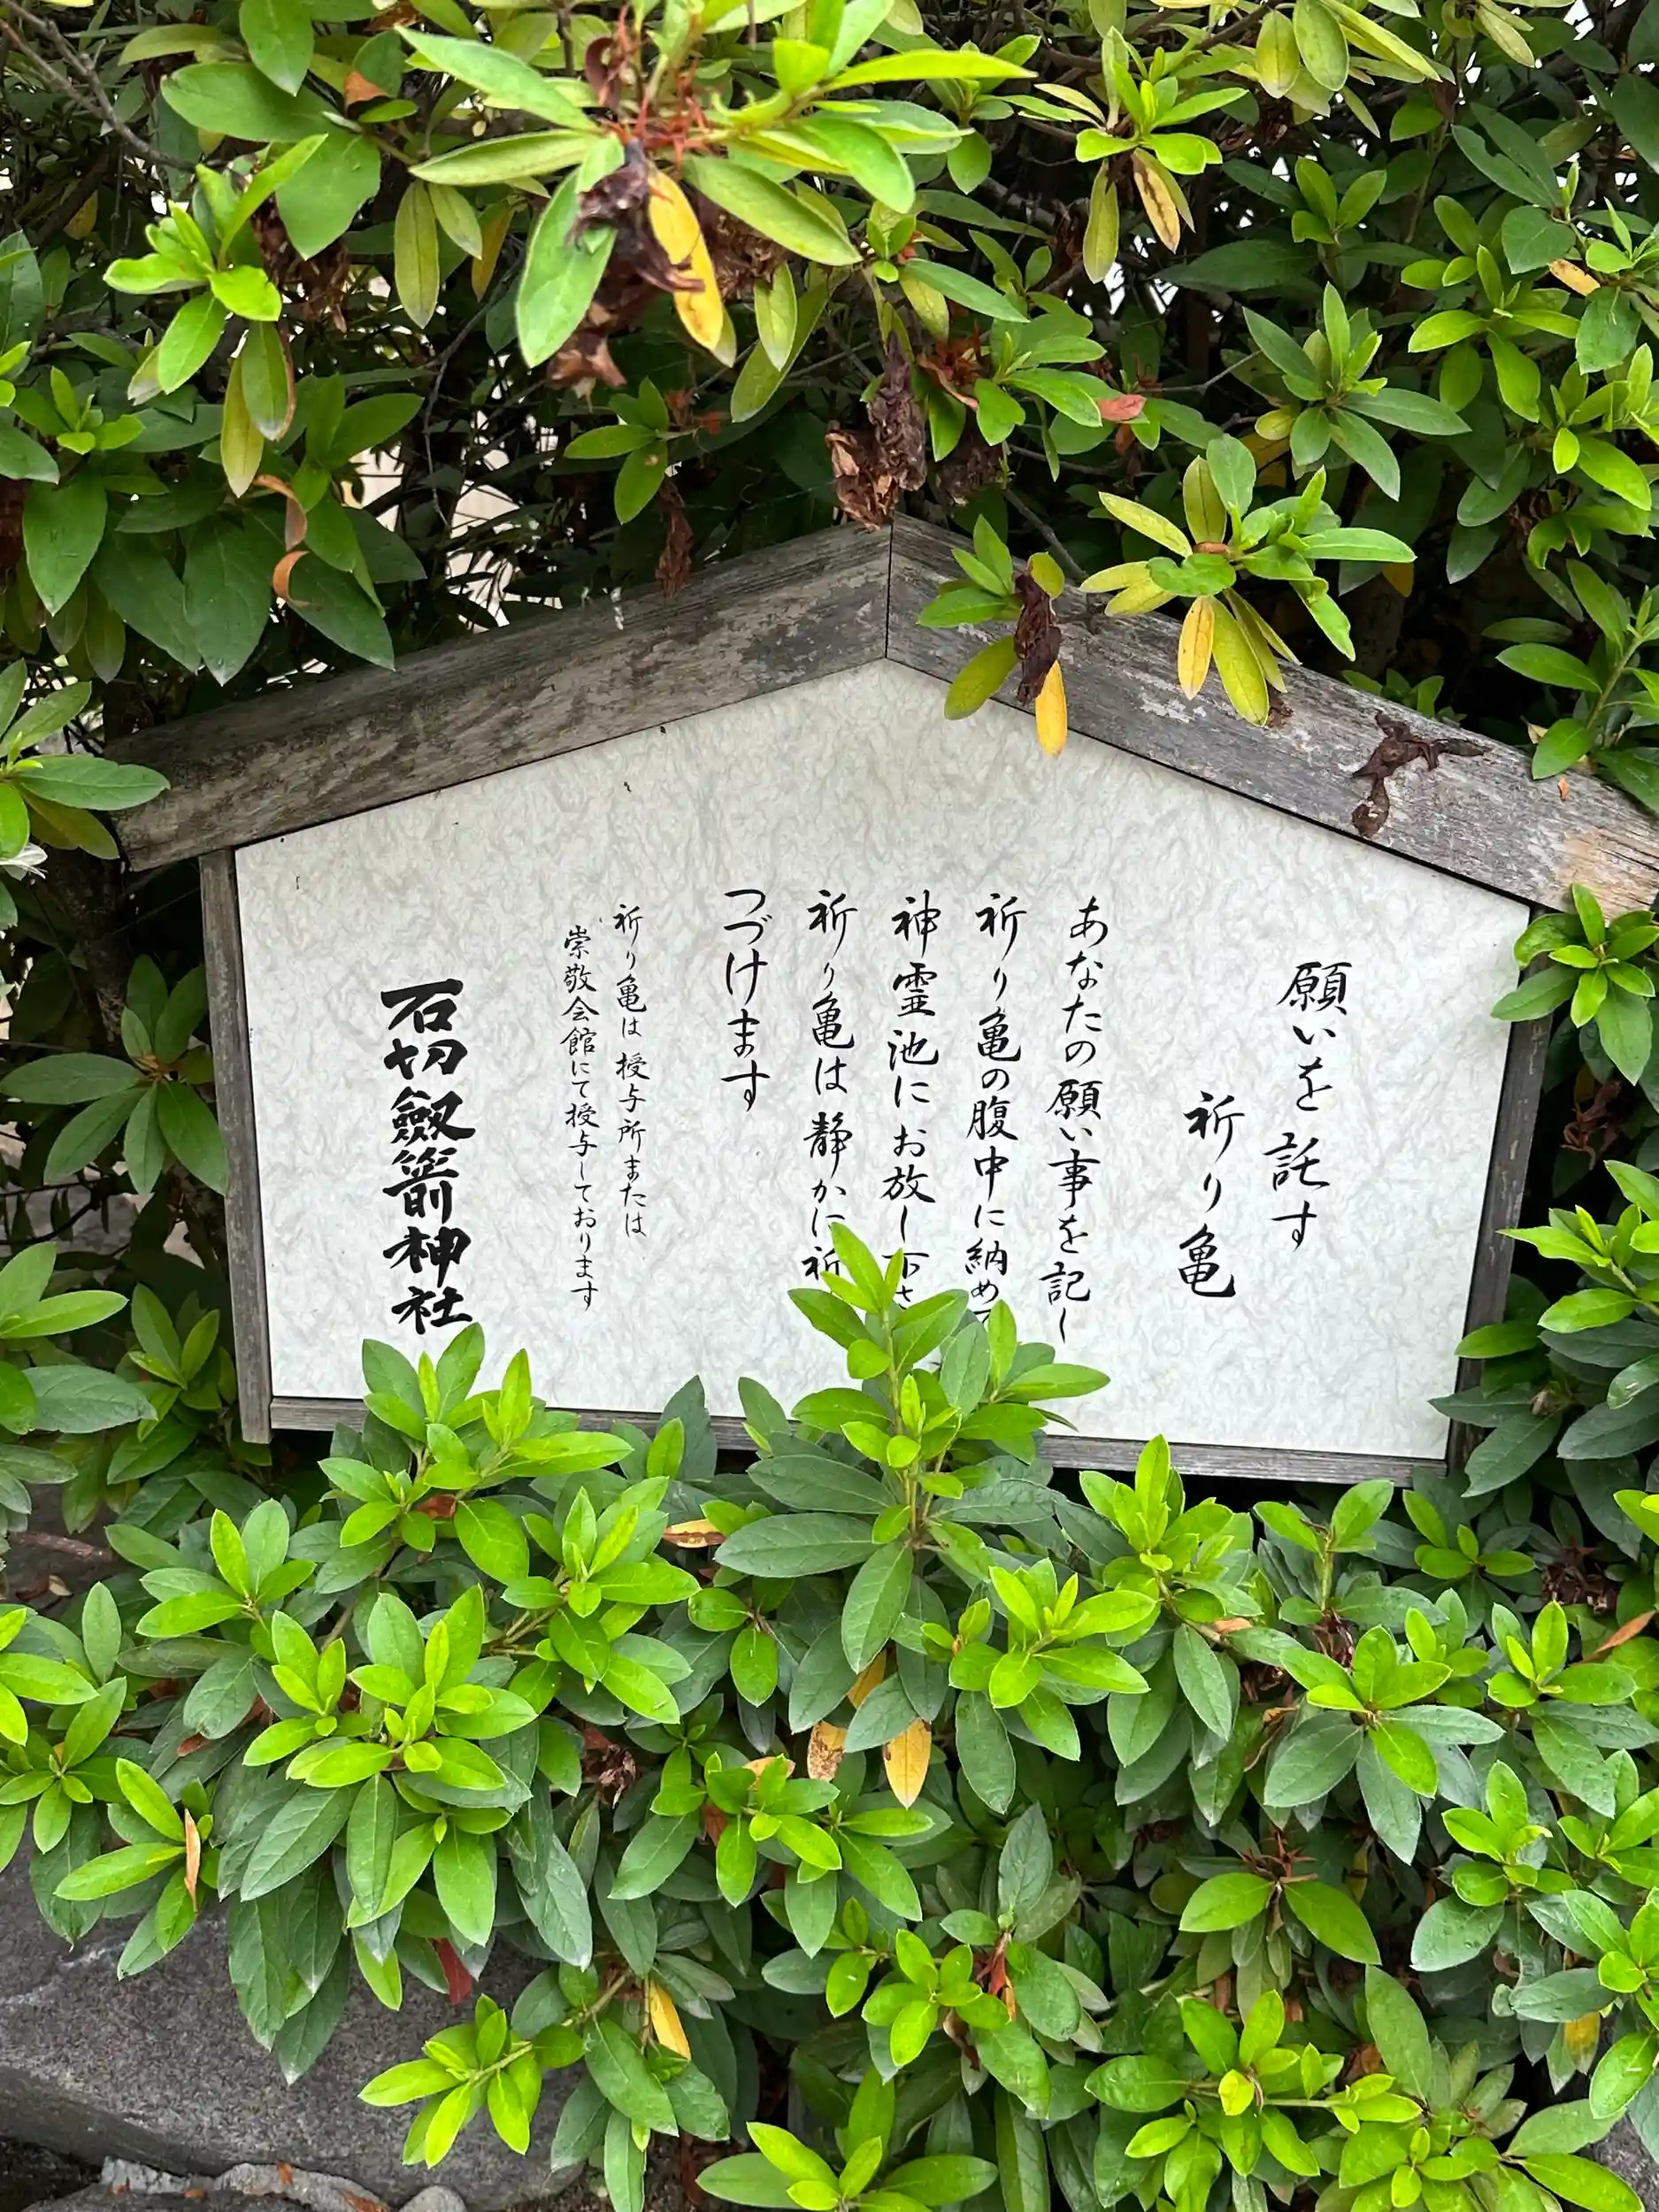 願いを託す
祈り亀
あなたの願い事を記し
祈り亀の腹中に納め
神霊池にお放し下さ
祈り亀は静かに祈
つづけます
祈り亀は授与所または
崇敬会館にて授与しております
石切劔箭神社